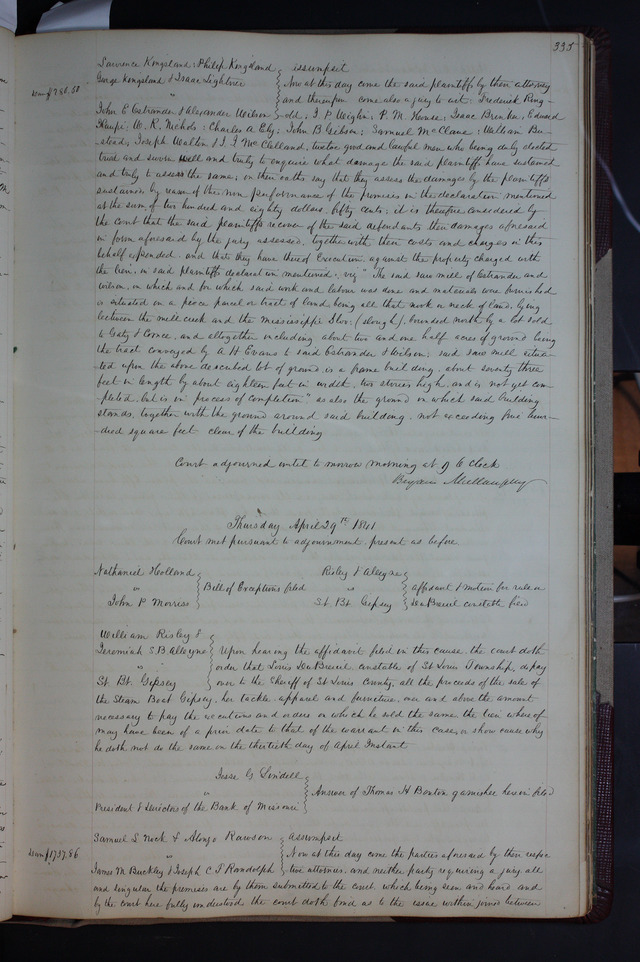 335
Lawrence Kingsland & Philip Kingsland
George Kingsland & Isaac Lightner
"
John C Ostrander & Alexander Wilson
Assumpsit
Now at this day come the said plaintiffs by their attorney
and thereupon come also a jury to wit: Frederick Ring-
P. M. House; Isaac Brinker, Edward
W. K. Nichols: Charles A Eby; John B Gibson; Samuel McClane; William Bu-
stead; Joseph Walton & J. J. McClelland, twelve good and lawful men who being duly elected
tried and sworn well and truly to enquire what damage the said plaintiffs have sustained
and truly to assess the same; on their oaths say that they assess the damages by the plaintiffs
sustained by reason of the non performance of the promises in the declaration mentioned
at the sum of two hundred and eighty dollars, fifty cents; it is therefore considered by
the Court that the said plaintiffs recover of the said defendants their damages aforesaid
in form aforesaid by the jury assessed, together with their costs and charges in this
behalf expended. and that they have thereof Execution against the property charged with
the lien, in said plaintiffs declaration mentioned, viz "The said saw mill of Ostrander and
Wilson, in which and for which said work and labour was done and materials were furnished
is situated on a piece parcel or tract of land, being all that nook or neck of land, lying
between the mill creek and the Mississippi Slov; (slough), bounded north by a lot sold
to Caty & Comce, and altogether including about two and one half acres of ground being
the tract conveyed by A H Evans to said Ostrander & Wilson; said saw mill situa-
ted upon the above described lot of ground, is a frame building, about seventy three
feet in length by about eighteen feet in width, two stories high, and is not yet com-
pleted, but is in process of completion" as also the ground on which said building
stands, together with the ground around said building, not exceeding five hun-
dred square feet clear of the building
Court adjourned until to morrow morning at 9 O clock
Thursday April 29th 1841
Court met pursuant to adjournment. present as before
Nathaniel Holland
"
John P Morriss
Bill of Exceptions filed
Risley & Alleyne
"
St. Bt. Gipsey
affidavit & motion for rule on
DuBreuil constable filed
William Risley &
Jeremiah S B Alleyne
"
St. Bt. Gipsey
Upon hearing the affidavit filed in this cause, the court doth
order that Louis DuBreuil, constable of St Louis Township, do pay
over to the Sheriff of St Louis County, all the proceeds of the sale of
the Steam Boat Gipsey, her tackle, apparel and furniture, over and above the amount
necessary to pay the executions and orders on which he sold the same the lien whereof
may have been of a prior date to that of the warrant in this case, or show cause why
he doth not do the same on the thirtieth day of April Instant
Jesse G Lindell
"
President & Directors of the Bank of Missouri
Answer of Thomas H Benton garnishee herein filed
Samuel S Nock & Alonzo Rawson
"
James M Buckley & Joseph C F Randolph
Assumpsit
Now at this day come the parties aforesaid by their respec
tive attornies, and neither party requiring a jury, all
and singular the premises are by them submitted to the Court. which being seen and heard and
by the court here fully understood the court doth find as to the issue within joined between